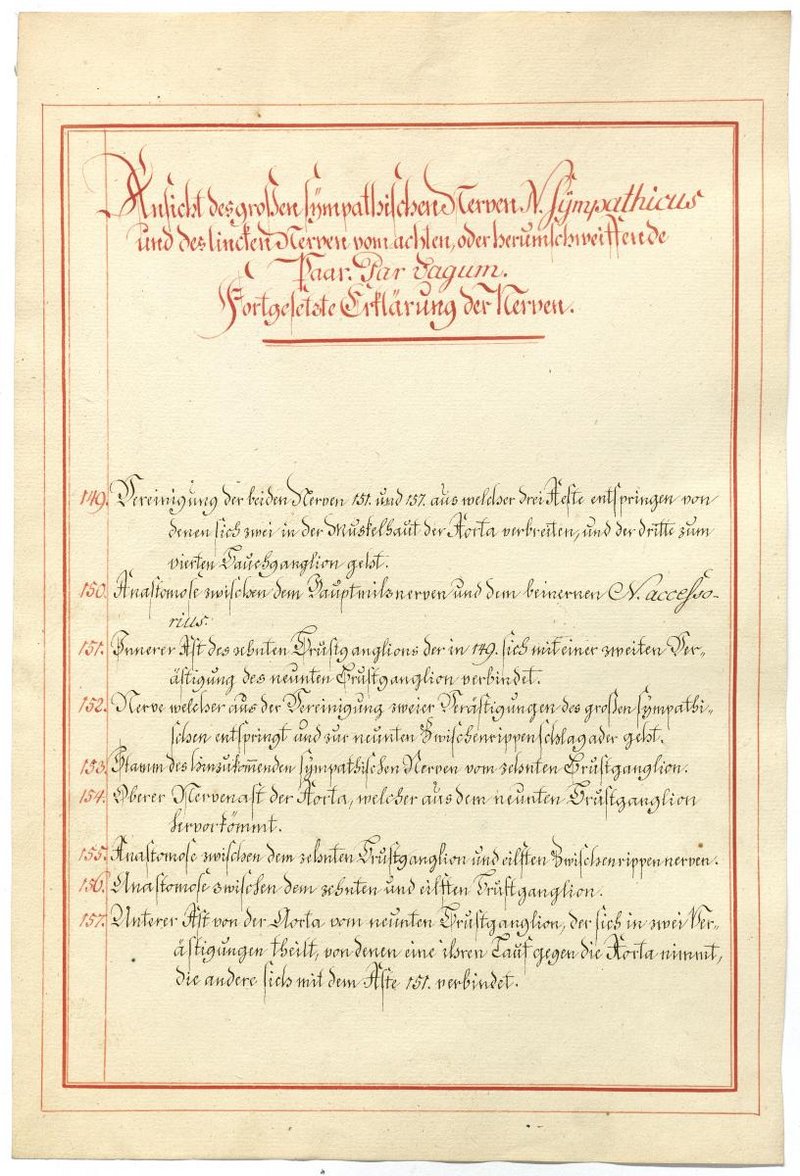 Ansicht des großen sÿmpathischen Nerven N. Sÿmpathicus
und des lincken Nerven vom achten, oder herumschweiffende
Paar. Par vagum.
Fortgesetzte Erklärung der Nerven.
149. Vereinigung der beiden Nerven 151. und 157. aus welcher drei Aeste entspringen von
denen sich zwei in der Muskelhaut der Aorta verbreiten, und der dritte zum
vierten Bauchganglion geht.
150. Anastomose zwischen dem Hauptmilznerven und dem beinernen N. accesso-
rius.
151. Innerer Ast des zehnten Brustganglions der in 149. sich mit einer zweiten Ver-
ästigung des neunten Brustganglion verbindet.
152. Nerve welcher aus der Vereinigung zweier Verästigungen des großen sympathi-
schen entspringt und zur neunten Zwischenrippenschlagader geht.
153. Stamm des hinzukom̅enden sympathischen Nerven vom zehnten Brustganglion.
154. Oberer Nervenast der Aorta, welcher aus dem neunten Brustganglion
hervorkömmt.
155. Anastomose zwischen dem zehnten Brustganglion und eilften Zwischenrippennerven.
156. Anastomose zwischen dem zehnten und eilften Brustganglion.
157. Unterer Ast von der Aorta vom neunten Brustganglion, der sich in zwei Ver-
ästigungen theilt, von denen eine ihren Lauf gegen die Aorta nimmt,
die andere sich mit dem Aste 151. verbindet.